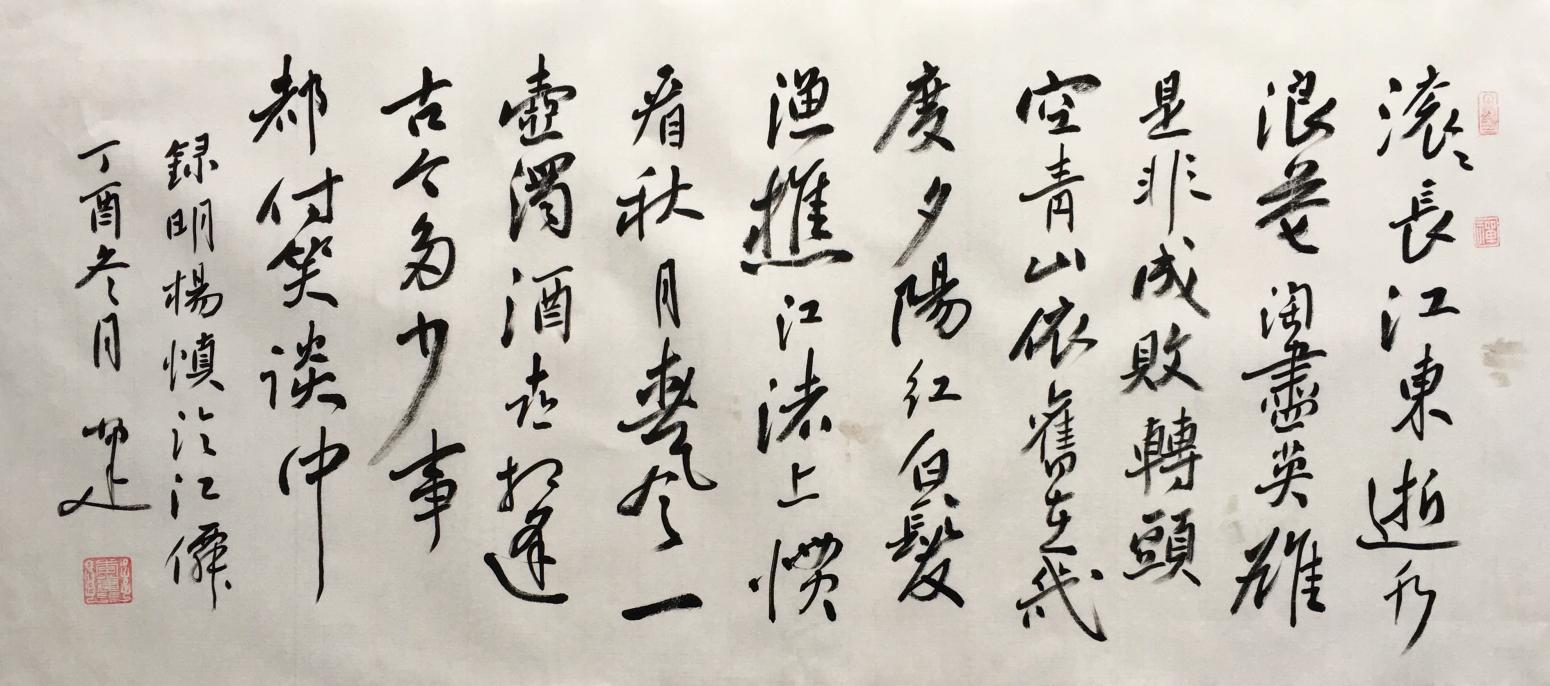 滚々長江東逝水
浪花淘盡英雄
是非成敗轉頭
空青山依舊在幾
度夕陽紅白髮
漁樵江渚上慣
看秋月春風一
壺濁酒喜相逢
古今多少事
都付笑談中
録明楊慎臨江僊
丁酉冬月